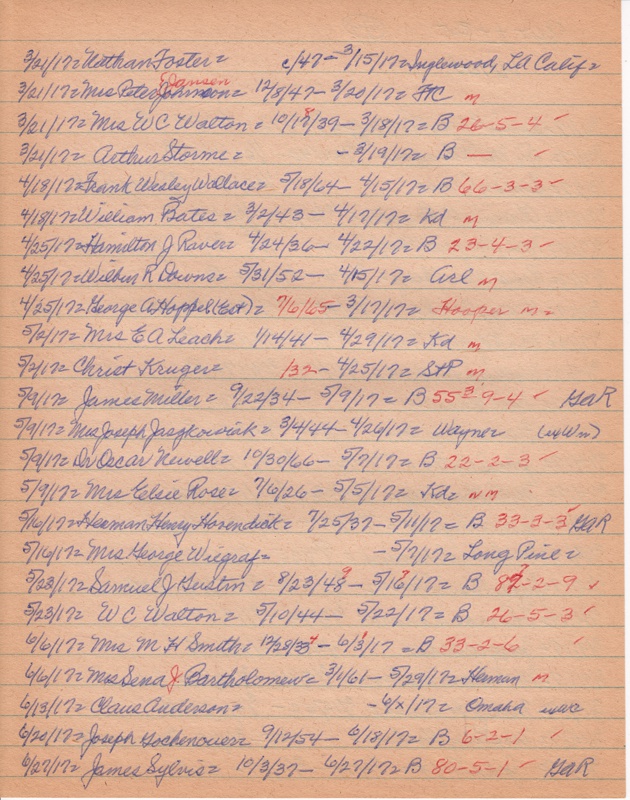 3/21/17= Nathan Foster= c/47- 3/15/17= Inglewood, LA Calif=
3/21/17= Mrs Peter Johnson= Jansen 12/8/47- 3/20/17= FC m
3/21/17= Mrs W C Walton= 10/18/39- 3/18/17= B 26-5-4 ✓
3/21/17= Arthur Storme= -3/19/17= B — ✓
4/18/17= Frank Wesley Wallace= 5/18/64- 4/15/17= B 66-3-3 ✓
4/18/17= William Bates= 3/2/43- 4/17/17= Kd m
4/25/17= Hamilton J Raver= 4/24/36- 4/22/17= B 23-4-3 ✓
4/25/17= Wilbur R Downs= 5/31/52- 4/15/17= Arl m
4/25/17= George A Hoppel (Est)= 7/6/65- 3/17/17= Hooper m=
5/2/17= Mrs E A Leach= 1/14/41- 4/29/17= Kd m
5/2/17= Christ Kruger= /32- 4/25/17= StP m
5/9/17= James Miller= 9/22/34- 5/9/17= B 55-9-4 ✓ GaR
5/9/17= Mrs Joseph Jaszkowiak= 3/4/44- 4/26/17= Wayne=
5/9/17= Dr Oscar Newell= 10/30/66- 5/7/17= B 22-2-3 ✓
5/9/17= Mrs Elsie Rose= 7/6/26- 5/5/17= Kd= nm
5/16/17= Herman Henry Hovendick= 7/25/37- 5/11/17= B 33-3-3 ✓ GaR
5/16/17= Mrs George Wiegraf= -5/7/17= Long Pine=
5/23/17= Samuel J Gustin= 8/23/48 9- 5/16/17= B -2-9 ✓
5/23/17= W C Walton= 5/10/44- 5/22/17= B 26-5-3 ✓
6/6/17= Mrs M H Smith= 12/28/33 4- 6/3/17= B 33-2-6 ✓
6/6/17= Mrs Sena J. Bartholomew= 3/1/61- 5/29/17= Herman m
6/13/17= Claus Anderson= -6/x/17= Omaha
6/20/17= Joseph Gochenouer= 9/12/54- 6/18/17= B 6-2-1 ✓
6/27/17= James Sylvis= 10/3/37- 6/27/17= B 80-5-1 ✓ GaR